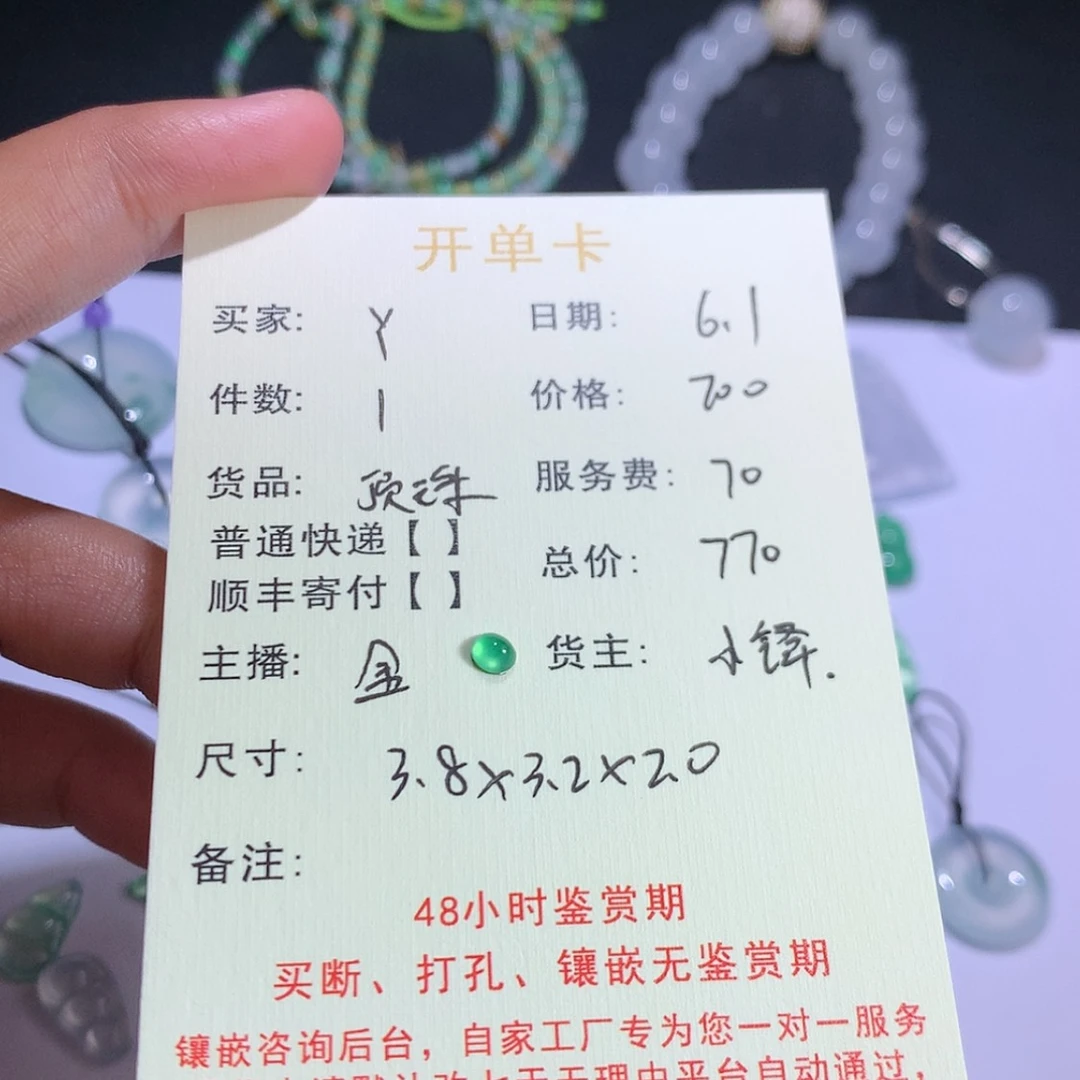 开单卡
买家: Y 日期: 6.1
件数: 1 价格: 700
货品: 顶珠 服务费: 70
普通快递【 】
总价: 770
顺丰寄付【 】
主播: 金 货主: 小锋.
尺寸: 3.8x3.2x2.0
备注:
48小时鉴赏期
买断、打孔、镶嵌无鉴赏期
镶嵌咨询后台，自家工厂专为您一对一服务
七天无理由平台自动通过，